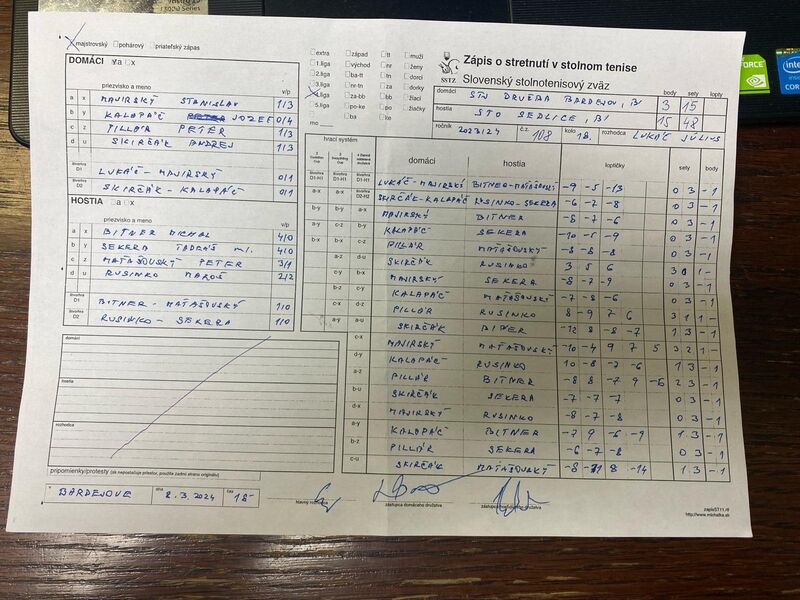 13000 Series
GEFORCE
intel
X majstrovský pohárový priateľský zápas
DOMÁCI a x
priezvisko a meno v/p
a x MAJIRSKÝ STANISLAV 1/3
b y KALAPÁČ JOZEF 0/4
c z PILLÁR PETER 1/3
d u SKIRČÁK ANDREJ 1/3
štvorhra D1 LUKÁČ - MAJIRSKÝ 0/1
štvorhra D2 SKIRČÁK - KALAPÁČ 0/1
HOSTIA a x
priezvisko a meno v/p
a x BITNER MICHAL 4/0
b y SEKERA TADEÁŠ ml. 4/0
c z MAŤAŠOVSKÝ PETER 3/1
d u RUSINKO MAROŠ 2/2
štvorhra D1 BITNER - MAŤAŠOVSKÝ 1/0
štvorhra D2 RUSINKO - SEKERA 1/0
domáci
hostia
rozhodca
pripomienky/protesty (ak nepostačuje priestor, použite zadnú stranu originálu)
BARDEJOVE dňa 2.3.2024 čas 18
hlavný rozhodca
zástupca domáceho družstva
zástupca hosťujúceho družstva
extra západ tt muži
1.liga východ nr ženy
2.liga ba-tt tn dorci
3.liga nr-tn za dorky
4.liga za-bb bb žiaci
5.liga po-ke po žiačky
mo ba ke
SSTZ
Zápis o stretnutí v stolnom tenise
Slovenský stolnotenisový zväz
body sety lopty
domáci STJ DRUŽBA BARDEJOV "B" 3 15
hostia STO SEDLICE "B" 15 48
ročník 2023/24 č.z. 108 kolo 18. rozhodca LUKÁČ JÚLIUS
hrací systém
domáci hostia loptičky sety body
LUKÁČ - MAJIRSKÝ BITNER - MAŤAŠOVSKÝ -9 -5 -13 0 3 - 1
SKIRČÁK - KALAPÁČ RUSINKO - SEKERA -6 -7 -8 0 3 - 1
a-x MAJIRSKÝ BITNER -8 -7 -6 0 3 - 1
b-y KALAPÁČ SEKERA -10 -5 -9 0 3 - 1
c-z PILLÁR MAŤAŠOVSKÝ -8 -8 -8 0 3 - 1
d-u SKIRČÁK RUSINKO 3 5 6 3 0 1 -
a-y MAJIRSKÝ SEKERA -8 -7 -9 0 3 - 1
b-z KALAPÁČ MAŤAŠOVSKÝ -7 -8 -6 0 3 - 1
PILLÁR RUSINKO 8 -9 7 6 3 1 1 -
SKIRČÁK BITNER -12 8 -8 -7 1 3 - 1
MAJIRSKÝ MAŤAŠOVSKÝ -10 -4 9 7 5 3 2 1 -
KALAPÁČ RUSINKO 10 -8 -7 -6 1 3 - 1
PILLÁR BITNER -8 8 -7 9 -6 2 3 - 1
SKIRČÁK SEKERA -7 -7 -7 0 3 - 1
MAJIRSKÝ RUSINKO -8 -7 -8 0 3 - 1
KALAPÁČ BITNER -7 9 -6 -9 1 3 - 1
PILLÁR SEKERA -6 -7 -8 0 3 - 1
SKIRČÁK MAŤAŠOVSKÝ -8 8 -14 1 3 - 1
zapisST11.rtf
http://www.michalka.sk